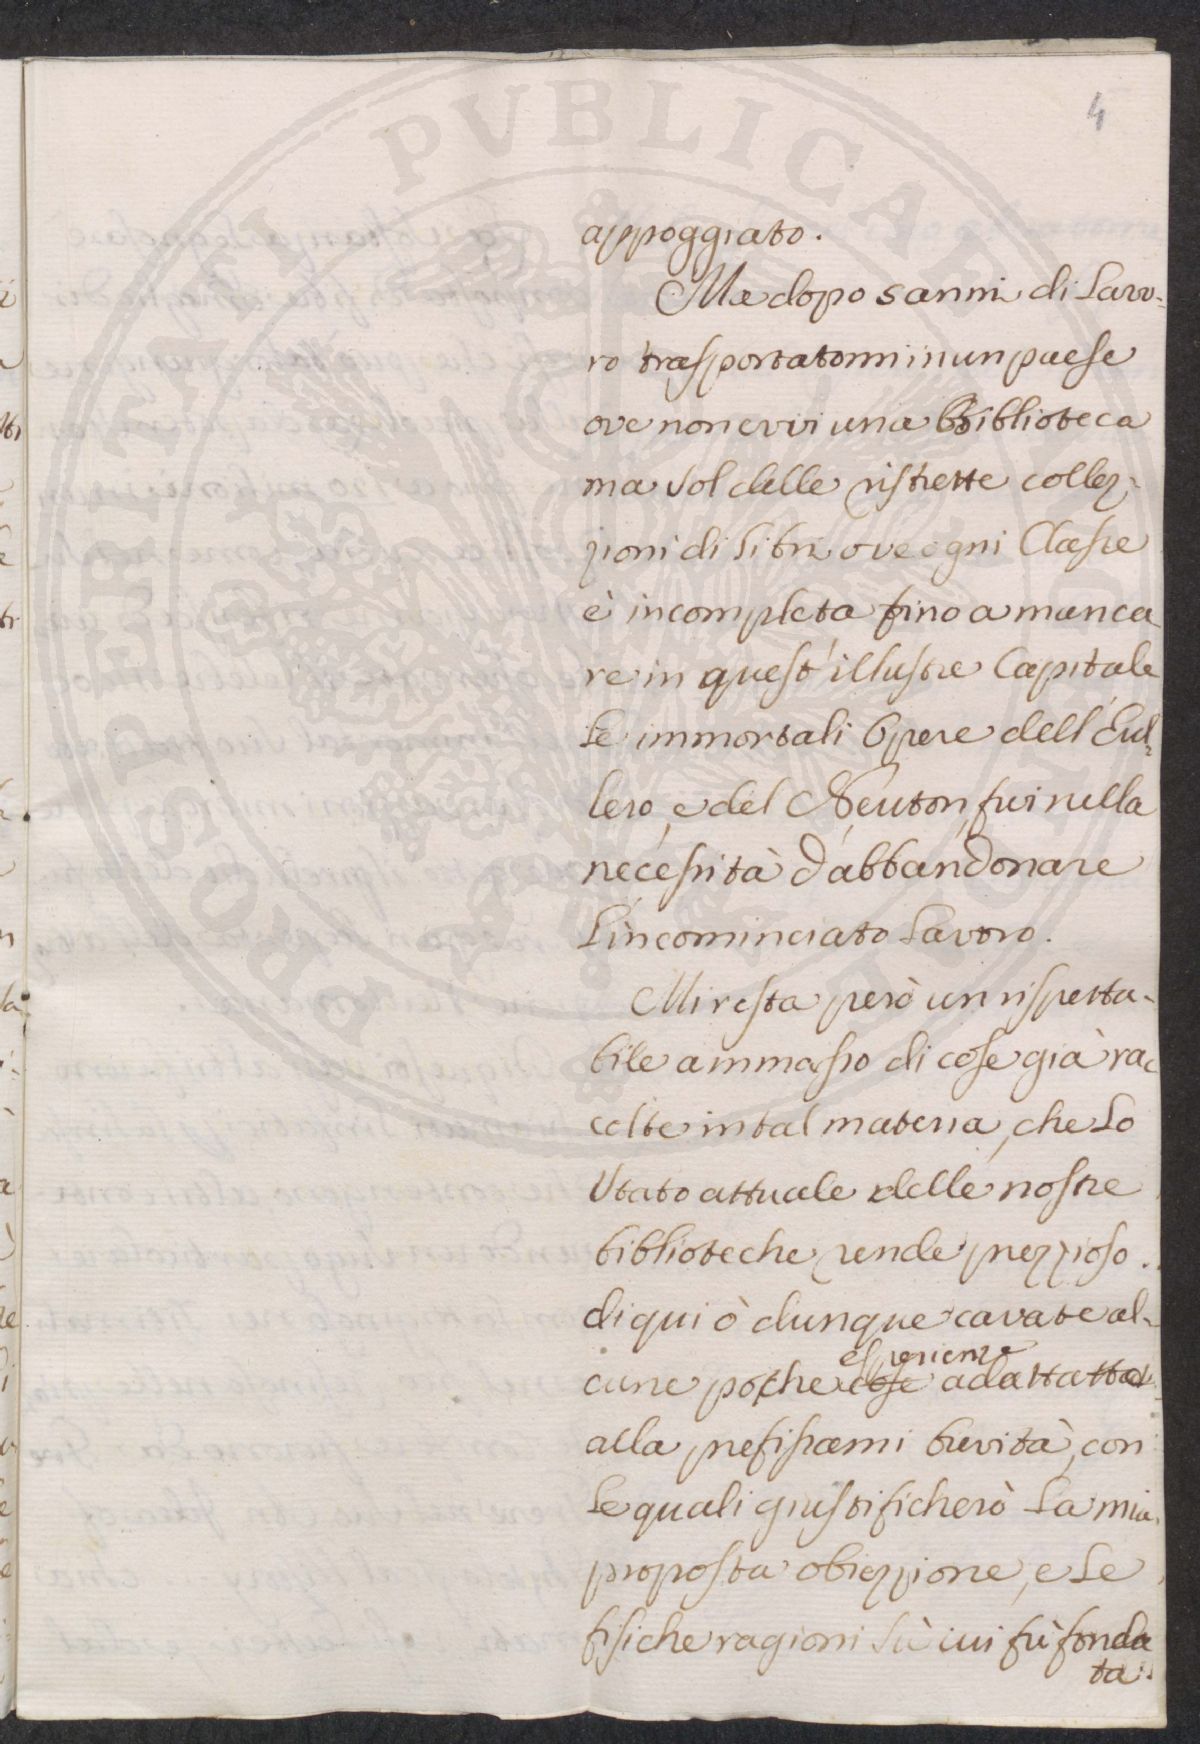 4
appoggiato.
Ma dopo 5 anni di Lavo-
ro trasportatomi in un paese
ove non evvi una Biblioteca
ma sol delle ristrette collez-
zioni di libri ove ogni Classe
è incompleta fino a manca
re in quest'illustre Capitale
le immortali Opere dell'Eul-
lero, e del Neuton, fui nella
necessità d'abbandonare
L'incominciato Lavoro.
Mi resta però un rispetta-
bile ammasso di cose già rac
colte in tal materia, che Lo
stato attuale delle nostre
biblioteche rende prezzioso.
di qui ò dunque cavate al-
esperienze
cune poche cose adatta
alla prefissami brevità, con
Le quali giustificherò La mia
proposta obiezzione, e Le
fisiche ragioni sù cui fù fonda
ta.
PROSPERITATI PVBLICAE